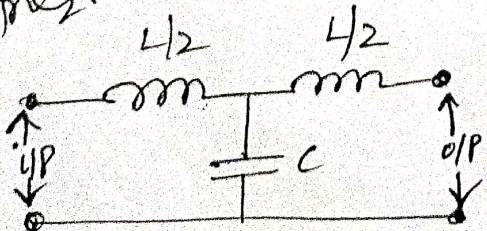 L/2 L/2
i/P C o/P